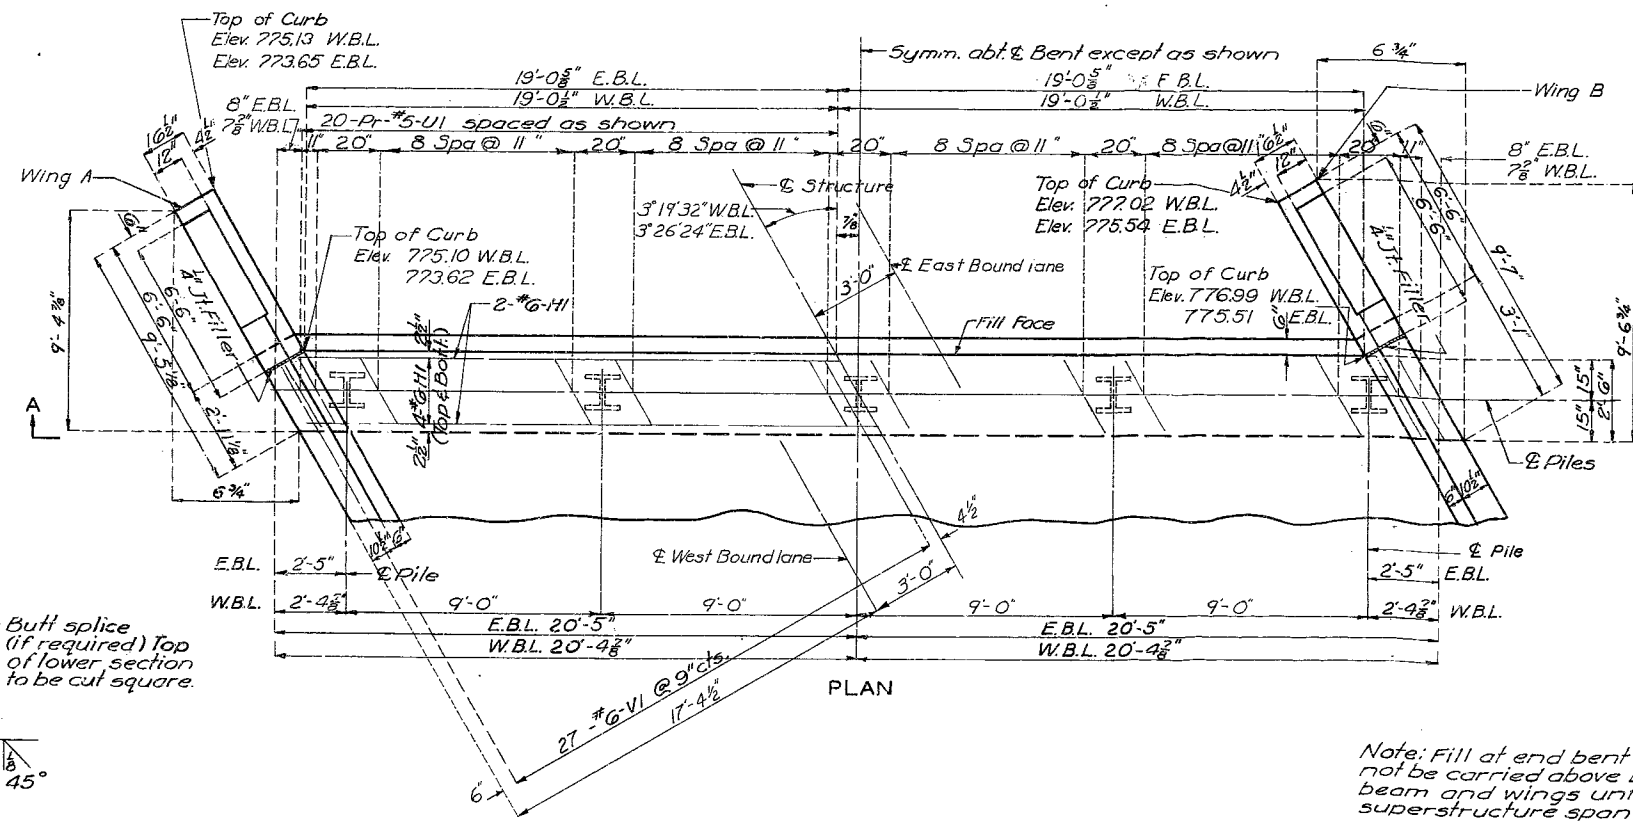 Top of Curb
Elev. 775.13 W.B.L.
Elev. 773.65 E.B.L.
Symm. abt. ℄ Bent except as shown
6 3/4"
19'-0 5/8" E.B.L.
19'-0 1/2" W.B.L.
19'-0 5/8" E.B.L.
19'-0 1/2" W.B.L.
Wing B
8" E.B.L.
7 7/8" W.B.L.
20-Pr-#5-U1 spaced as shown
11" 20" 8 Spa @ 11" 20" 8 Spa @ 11" 20" 8 Spa @ 11" 20" 8 Spa @ 11" 20" 11"
16 1/2"
12"
4 1/2"
16 1/2"
12"
4 1/2"
6"
8" E.B.L.
7 7/8" W.B.L.
Wing A
℄ Structure
3°19'32" W.B.L.
3°26'24" E.B.L.
7/8"
Top of Curb
Elev. 777.02 W.B.L.
Elev. 775.54 E.B.L.
6'-6"
6'-6"
9'-7"
3'-1"
1/4" Jt. Filler
Top of Curb
Elev. 775.10 W.B.L.
773.62 E.B.L.
℄ East Bound lane
3'-0"
Top of Curb
Elev. 776.99 W.B.L.
775.51 E.B.L.
6"
6"
1/4" Jt. Filler
6'-6"
6'-6"
9'-5 1/8"
2'-11 1/8"
9'-4 7/8"
9'-6 3/4"
2-#6-H1
Fill Face
2 1/2"
4-#6-H1
(Top & Bott.)
2 1/2"
15"
15"
2'-6"
A
6 3/4"
℄ Piles
10 1/2"
6"
6"
10 1/2"
4 1/2"
℄ West Bound lane
3'-0"
E.B.L. 2'-5" ℄ Pile
W.B.L. 2'-4 7/8" 9'-0" 9'-0" 9'-0" 9'-0" 2'-4 7/8" W.B.L.
℄ Pile
2'-5" E.B.L.
E.B.L. 20'-5"
W.B.L. 20'-4 7/8"
E.B.L. 20'-5"
W.B.L. 20'-4 7/8"
Butt splice
(if required) Top
of lower section
to be cut square.
27-#6-V1 @ 9" cts.
17'-4 1/2"
6"
PLAN
1/8
45°
Note: Fill at end bent
not be carried above
beam and wings
superstructure span